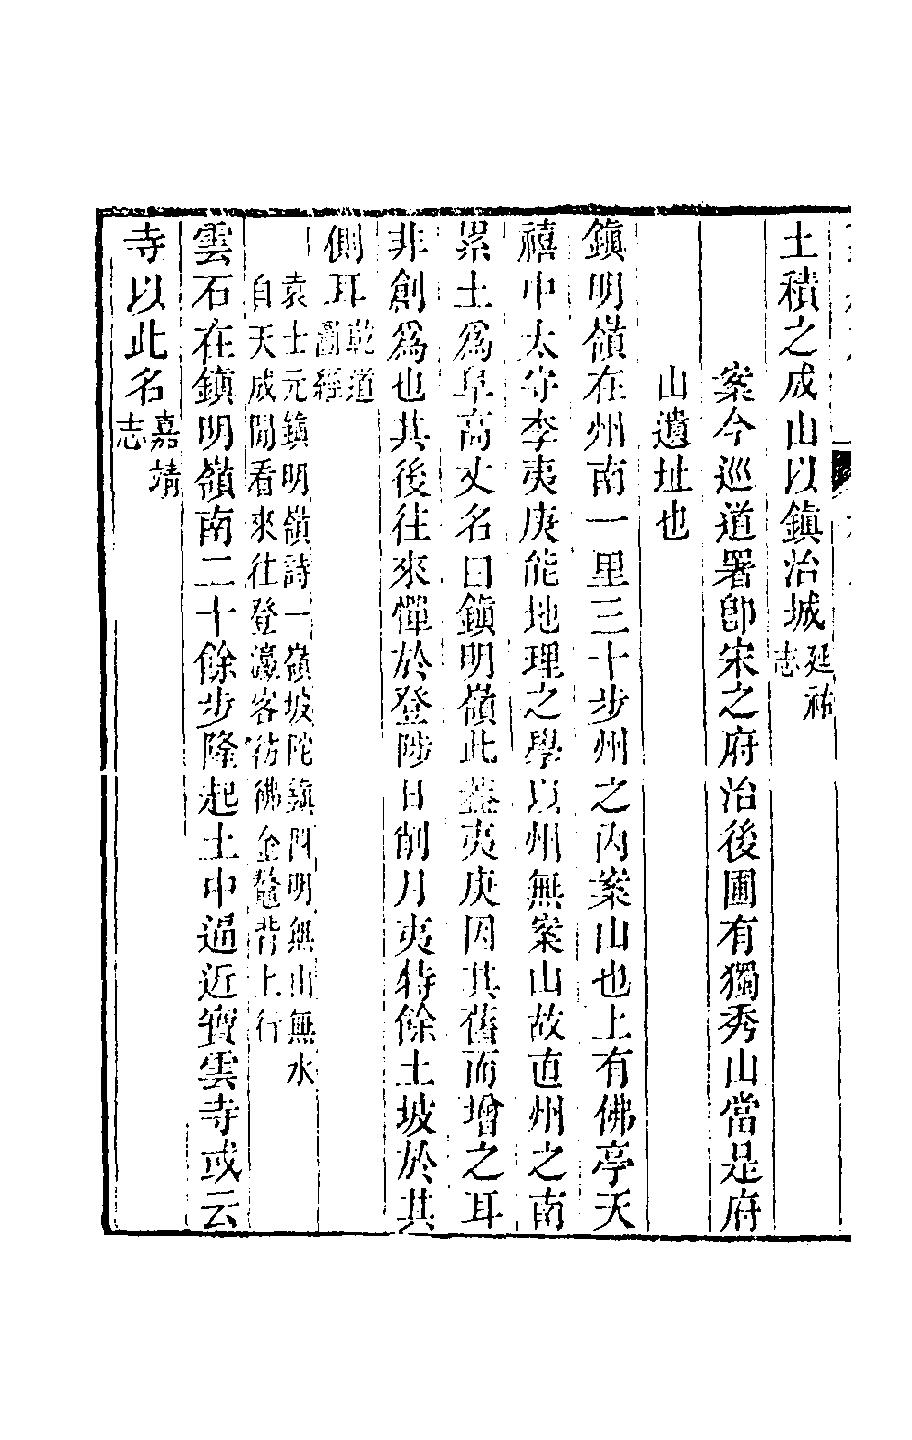 土積之成山以鎮治城延祐志
案今巡道署卽宋之府治後圃有獨秀山當是府
山遺址也
鎮明嶺在州南一里三十步州之內案山也上有佛亭天
禧中太守李夷庚能地理之學以州無案山故直州之南
累土為阜高丈名曰鎮明嶺此蓋夷庚因其舊而增之耳
非創為也其後往來憚於登陟日削月夷特餘土坡於其
側耳乾道圖經
袁士元鎮明嶺詩一嶺坡陀鎮四明無山無水
自天成閒看來往登瀛客彷彿金鼇背上行
雲石在鎮明嶺南二十餘步隆起土中逼近寶雲寺或云
寺以此名嘉靖志